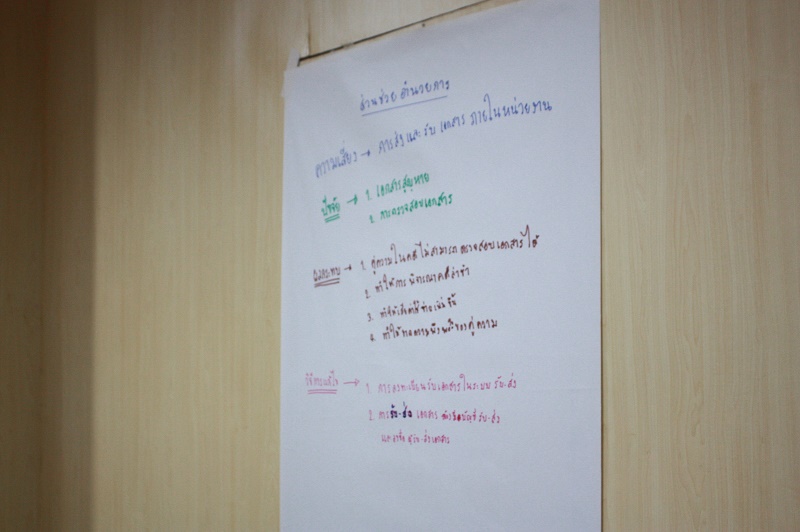 ส่วนช่วยอำนวยการ
ความเสี่ยง → การส่งและรับเอกสาร ภายในหน่วยงาน
ปัจจัย → 1. เอกสารสูญหาย
2. การตรวจสอบเอกสาร
ผลกระทบ → 1. คู่ความในคดีไม่สามารถตรวจสอบเอกสารได้
2. ทำให้การพิจารณาคดีล่าช้า
3. ทำให้เสียค่าใช้จ่ายเพิ่มขึ้น
4. ทำให้ขาดความพึงพอใจของคู่ความ
วิธีการแก้ไข → 1. การลงทะเบียนรับเอกสารในระบบ รับ-ส่ง
2. การรับ-ส่ง เอกสาร ต้องมีบัญชีรับ-ส่ง
และลงชื่อ ผู้รับ-ส่งเอกสาร